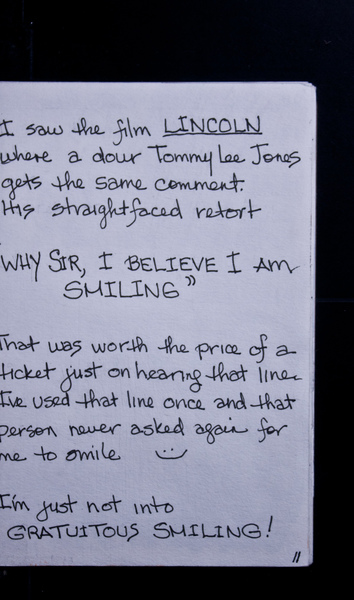 I saw the film LINCOLN
where a dour Tommy Lee Jones
gets the same comment.
His straightfaced retort
"WHY SIR, I BELIEVE I AM
SMILING"
That was worth the price of a
ticket just on hearing that line.
I've used that line once and that
person never asked again for
me to smile
I'm just not into
GRATUITOUS SMILING!
11